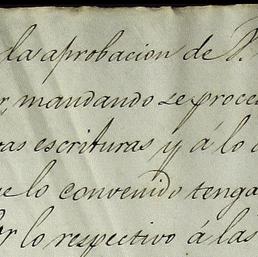 la aprobacion de
mandando se proce
as escrituras y á lo
e lo convenido tenga
por lo respectivo á las